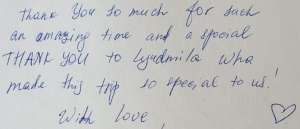 thank you so much for such
an amazing time and a special
THANK YOU to Lyudmila who
made this trip so special to us!
With love,